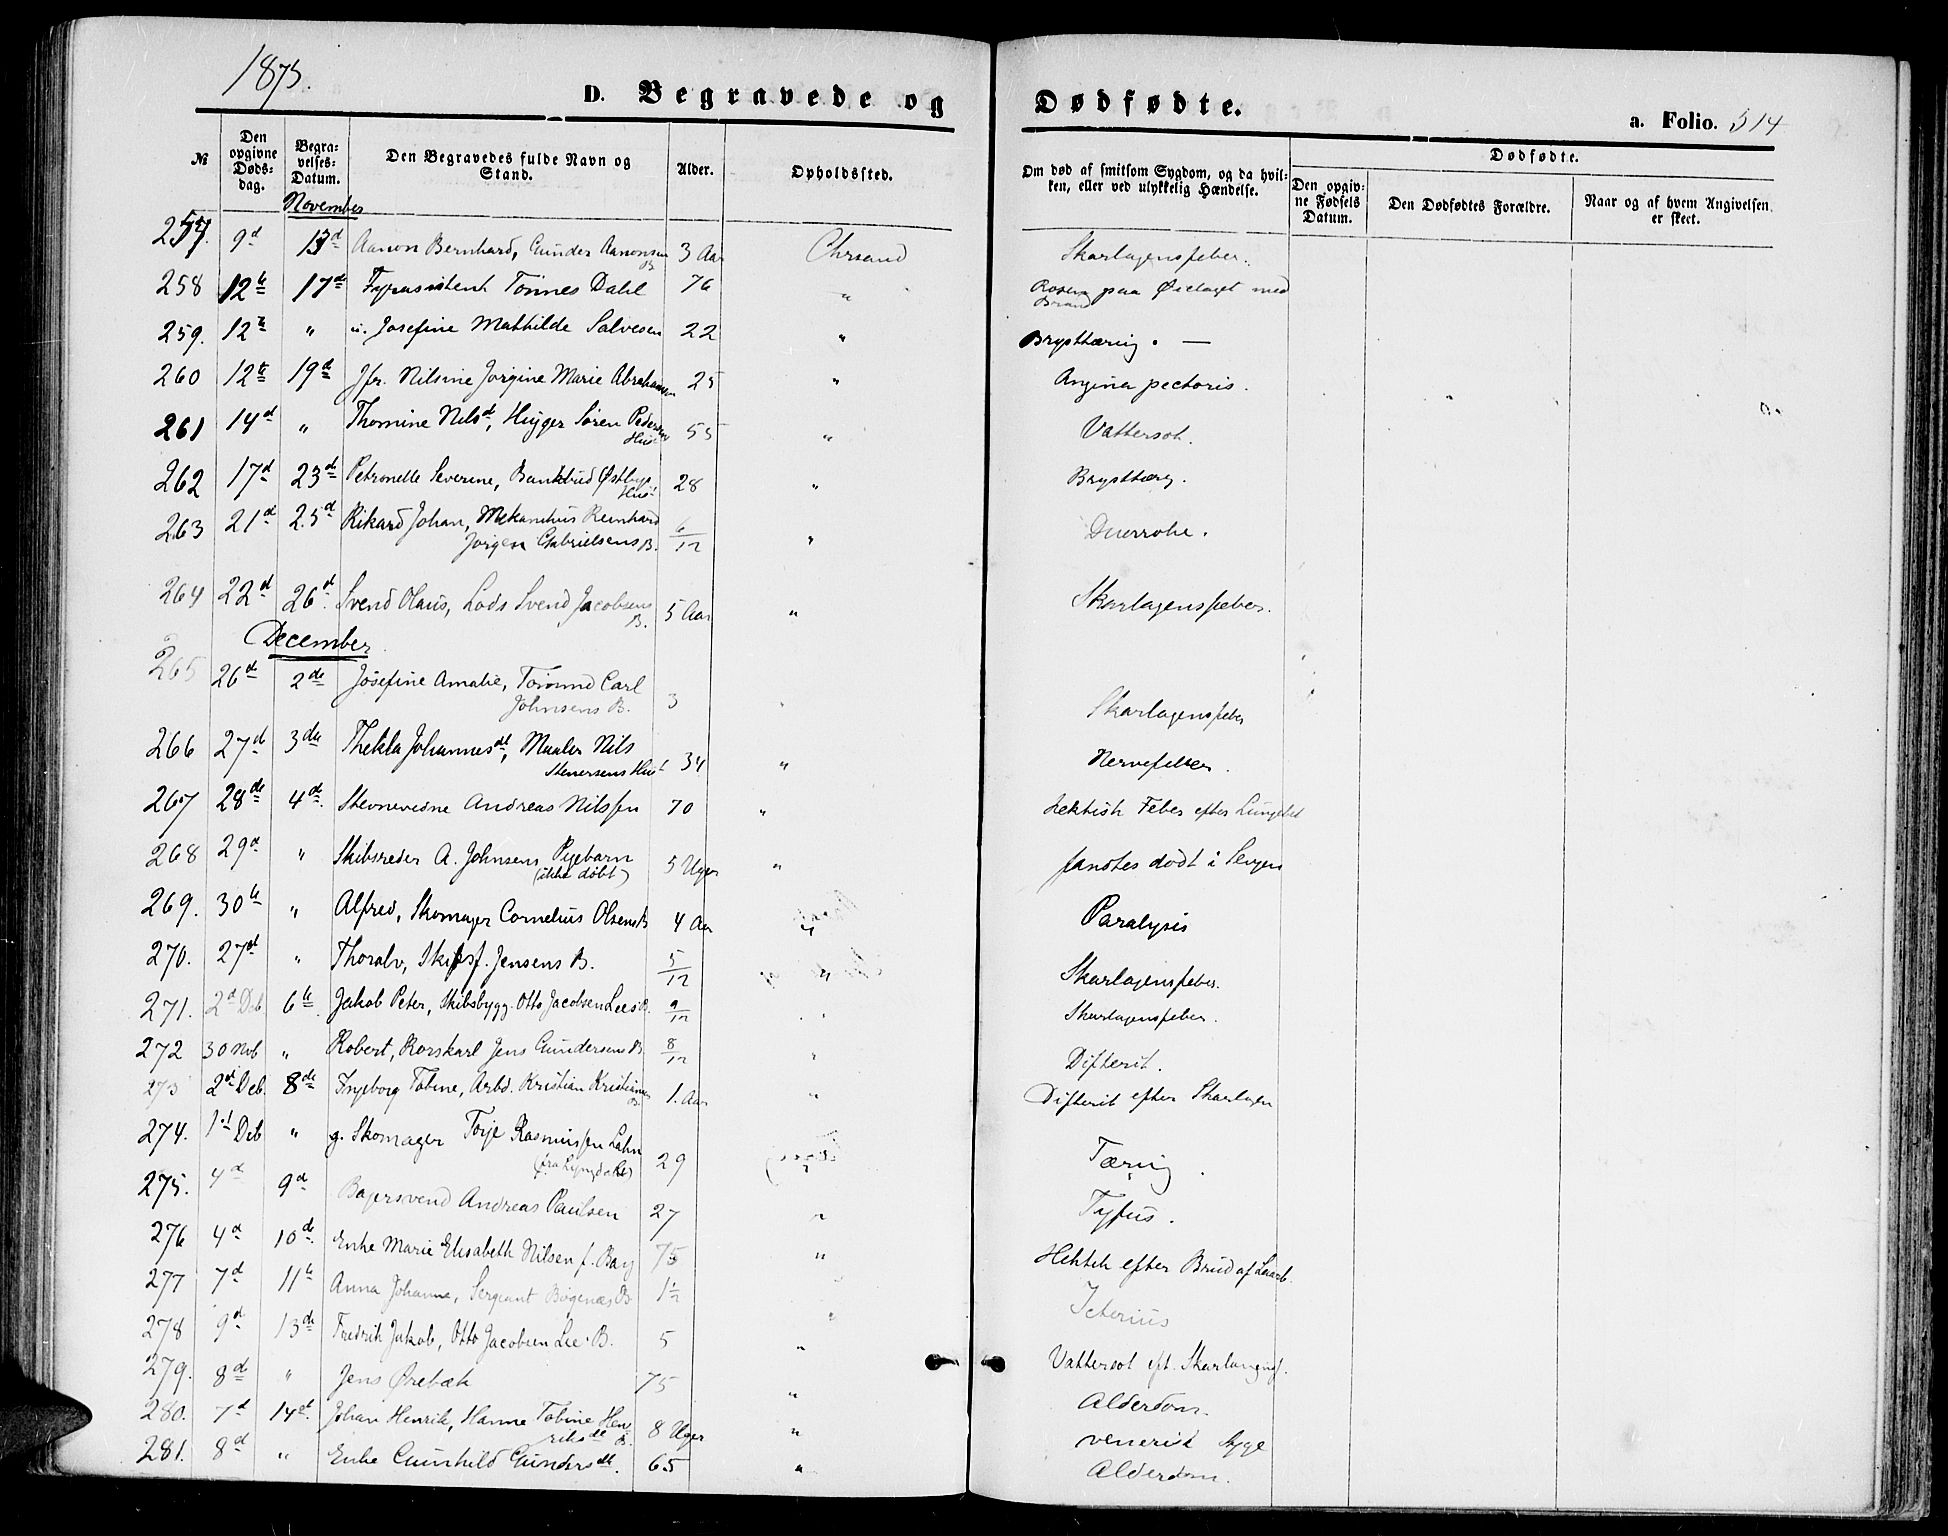 1875.
D. Begravede og Dødfødte.
a. Folio. 514
№
Den opgivne Dødsdag.
Begravelses-Datum.
Den Begravedes fulde Navn og Stand.
Alder.
Opholdssted.
Om død af smitsom Sygdom, og da hvilken, eller ved ulykkelig Hændelse.
Dødfødte.
Den opgivne Fødsels Datum.
Den Dødfødtes Forældre.
Naar og af hvem Angivelsen er skeet.
November
257. 9d 13d Aanon Bernhard, Gunder Aanonsen B. 3 Aar Chrsand Skarlagensfeber.
258 12te 17de Fyrassistent Tönnes Dahl 76 " Rosen paa Øielaget med Brand
259. 12te " u. Josefine Mathilde Salvesen 22 " Brysttæring. —
260 12te 19de Jfr. Nilsine Jorgine Marie Abrahamsen 25 " Angina pectoris.
261 14d " Thomine Nilsdt, Søren Pedersen Hust 55 " Vattersot.
262 17d 23de Petronelle Severine, Bankbud Østbye Hust 28 " Brysttærg.
263 21d 25d Rikard Johan, Mekanikus Reinhard
Jørgen Gabrielsens B. 6/12 "
264 22d 26d. Svend Olaus, Lods Svend Jacobsens B. 5 Aar " Skarlagensfeber.
December
265 26d 2de Josefine Amalie, Carl
Johnsens B. 3 " Skarlagensfeber
266 27d 3die Thekla Johannesdt, Maaler Nils
Stenersens Hust 34 " Nervefeber.
267 28de 4de Stevnevidne Andreas Nilssen 70 " Hektisk Feber efter
268 29d " Skibsreder A. Johnsens Pigebarn
(ikke döbt) 5 Uger " fandtes dödt i Sengen
269. 30te " Alfred, Skomager Cornelius Olsens B 4 Aar " Paralysis
270. 27de " Thoralv, Skibsf. Jensens B. 5/12 " Skarlagensfeber.
271. 2d Deb 6te Jakob Peter, Skibsbygg. Otto Jacobsen Lees B. 9/12 " Skarlagensfeber.
272 30 Nvb " Robert, Rorskarl Jens Gundersens B. 8/12 " Difterit.
273 2d Deb. 8de Ingeborg Tobine, Arbd. Kristian B. 1. Aar " Difterit efter Skarlagen
274. 1st Deb " g. Skomager Torje Rasmussen Lahn
(fra Lyngdal) 29 " Tæring.
275. 4d 9d Bagersvend Andreas Paulsen 27 " Tyfus.
276 4d 10de Enke Marie Elisabeth Nilsen f. Bay 75 " Hektik efter Brud af Laarb.
277 7d 11te Anna Johanne, Sergeant Bøgenæs B 1½ " Icterius
278 9d 13de Fredrik Jakob, Otto Jacobsen Lee B. 5 " Vattersot eft. Skarlagensf.
279. 8de " Jens Ørebæk 75 " Alderdom.
280. 7d 14de Johan Henrik, Hanne Tobine Henriksdt B. 8 Uger " venerisk Syge
281. 8d " Enke Gunhild Gundersdt. 65 " Alderdom.